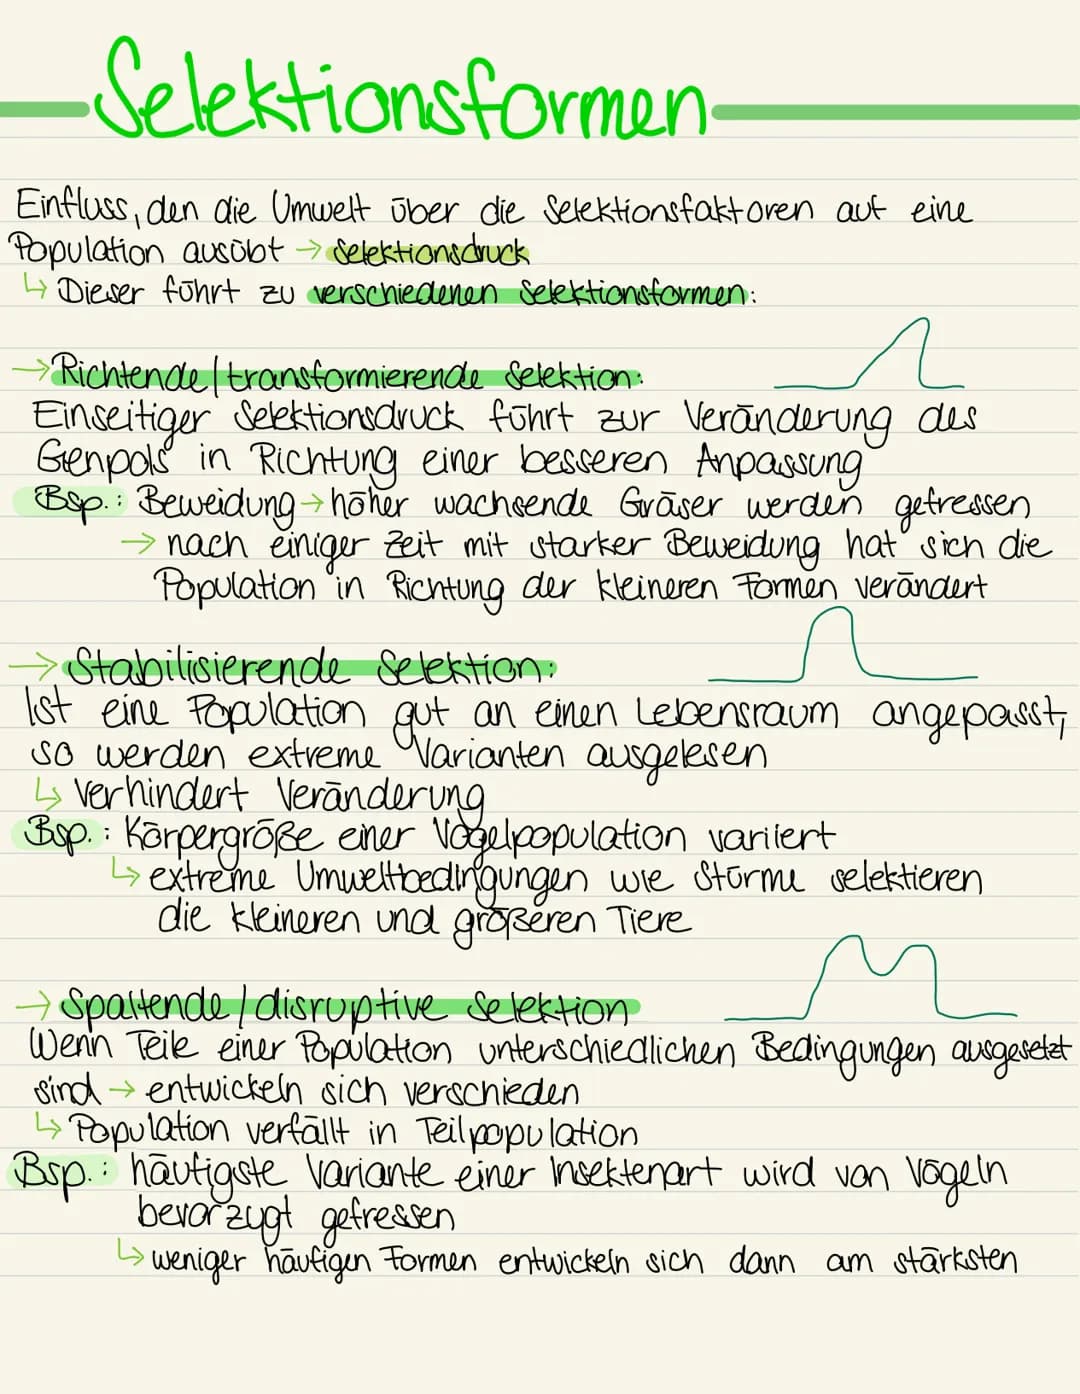 Selektionsformen
Einfluss, den die Umwelt über die Selektionsfaktoren auf eine
Population ausübt → Selektionsdruck
↳ Dieser führt zu verschiedenen Selektionsformen:
→ Richtende/transformierende Selektion:
Einseitiger Selektionsdruck führt zur Veränderung des
Genpols in Richtung einer besseren Anpassung
Bsp.: Beweidung → höher wachsende Gräser werden gefressen
→ nach einiger Zeit mit starker Beweidung hat sich die
Population in Richtung der kleineren Formen verändert
→ Stabilisierende Selektion:
Ist eine Population gut an einen Lebensraum angepasst,
so werden extreme Varianten ausgelesen
↳ Verhindert Veränderung
Bsp.: Körpergröße einer Vogelpopulation variiert
↳ extreme Umweltbedingungen wie Stürme selektieren
die kleineren und größeren Tiere
→ Spaltende/disruptive Selektion
Wenn Teile einer Population unterschiedlichen Bedingungen ausgesetzt
sind → entwickeln sich verschieden
↳ Population verfällt in Teilpopulation
Bsp.: häufigste Variante einer Insektenart wird von Vögeln
bevorzugt gefressen
↳ weniger häufigen Formen entwickeln sich dann am stärksten